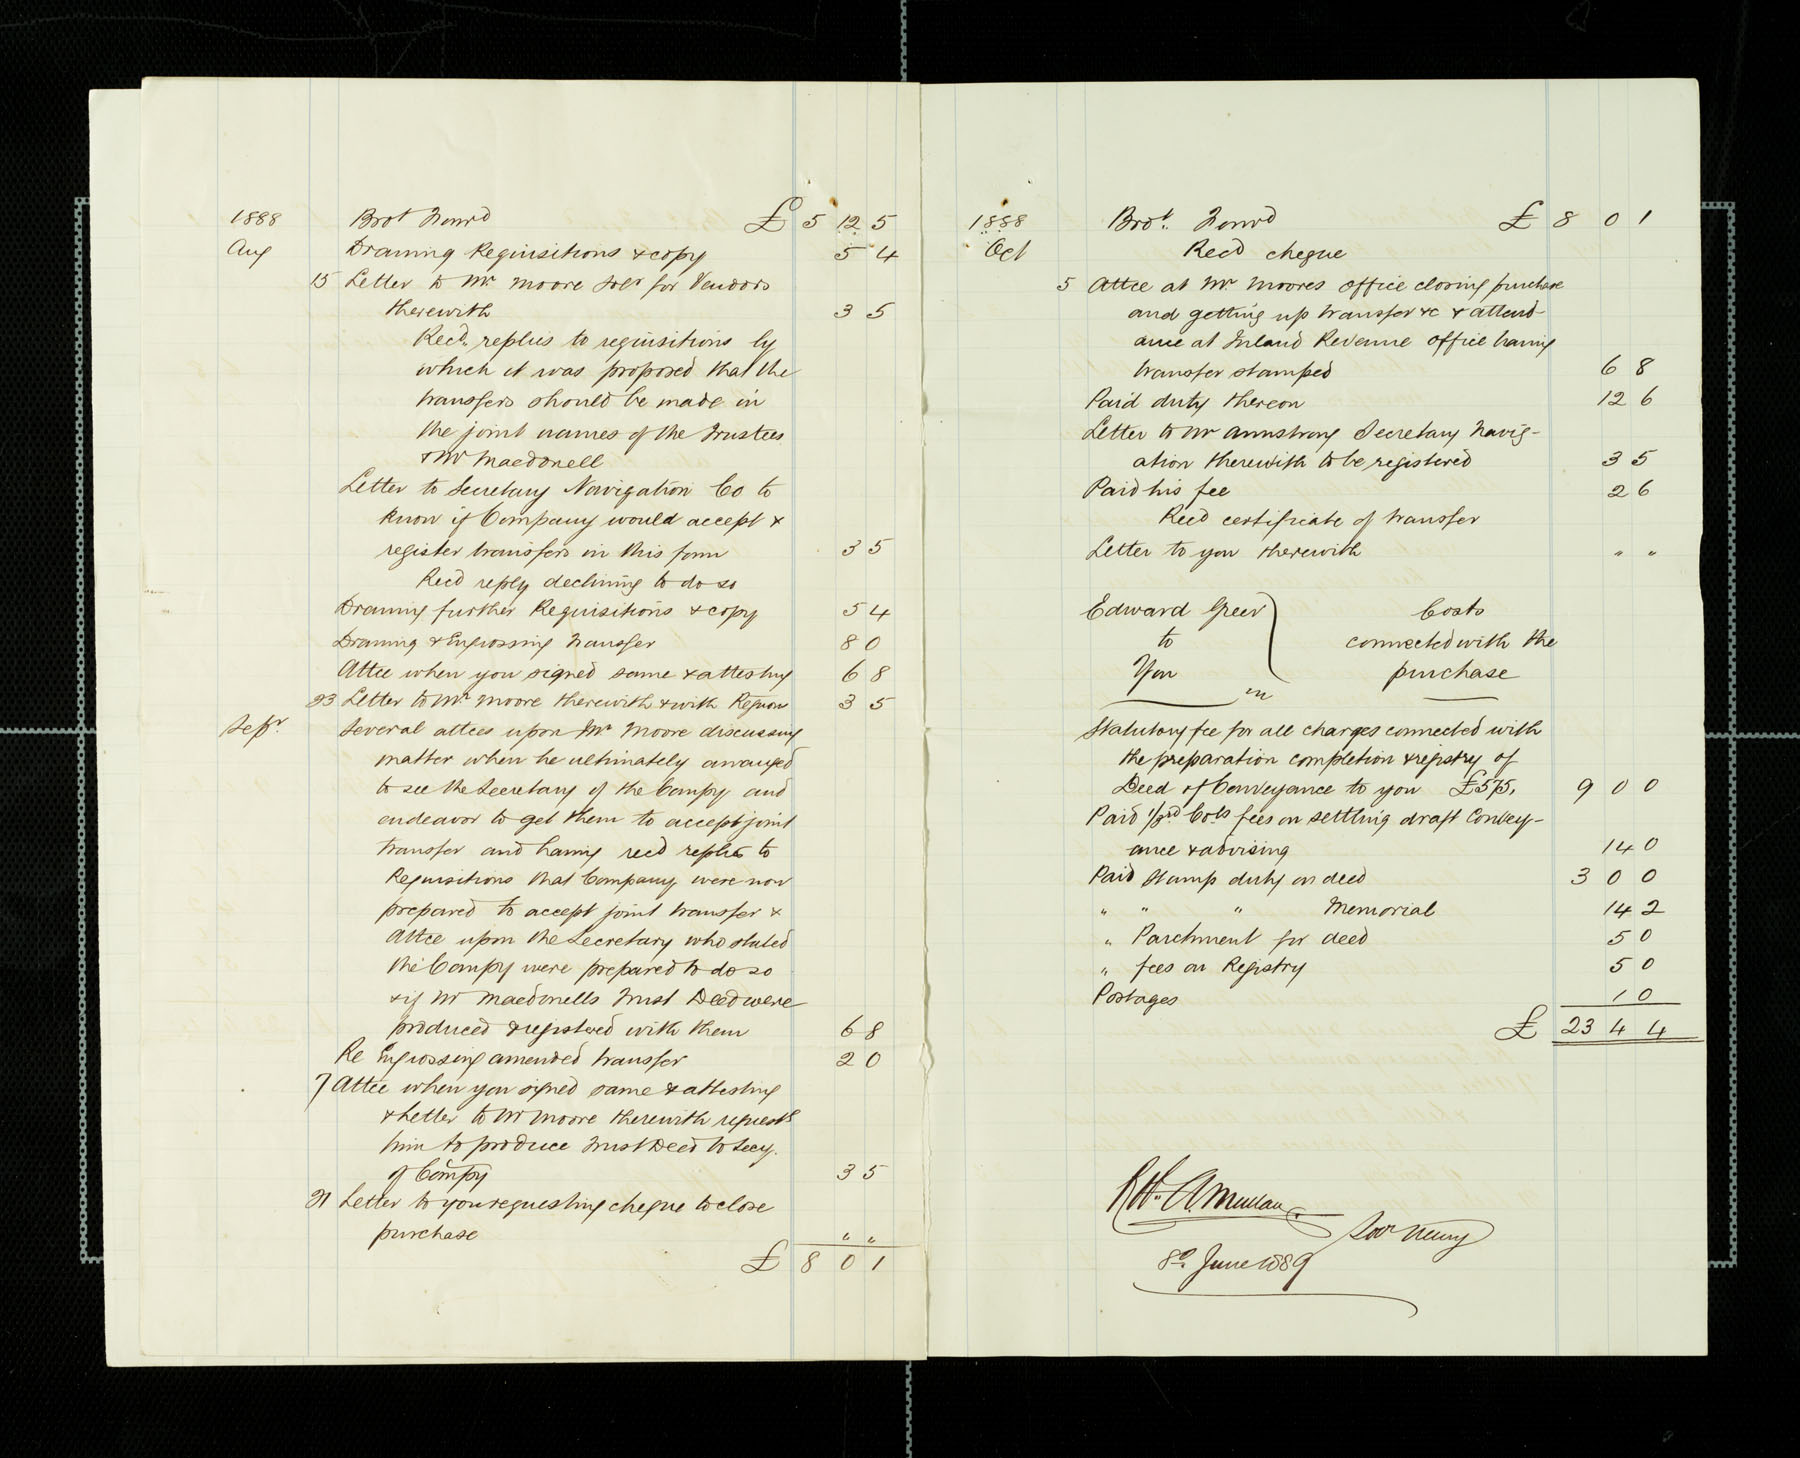 1888 Brot Forwd £ 5 12 5
Aug Drawing Requisitions & copy 5 4
15 Letter to Mr Moore Solr for Vendors
therewith 3 5
Recd. replies to requisitions by
which it was proposed that the
transfers should be made in
the joint names of the Trustees
& Mr Macdonell
Letter to Secretary Navigation Co to
know if Company would accept &
register transfers in this form 3 5
Recd reply declining to do so
Drawing further Requisitions & copy 5 4
Drawing & Engrossing Transfer 8 0
Attce when you signed same & attesting 6 8
23 Letter to Mr Moore therewith & with Reqnons 3 5
Sepr. Several attces upon Mr Moore discussing
matter when he ultimately arranged
to see the Secretary of the Compy and
endeavor to get them to accept joint
transfer and having recd replies to
Requisitions that Company were now
prepared to accept joint transfer &
Attce upon the Secretary who stated
the Compy were prepared to do so
& if Mr Macdonells Trust Deed were
produced & registered with them 6 8
Re Engrossing amended transfer 2 0
7 Attce when you signed same & attesting
& Letter to Mr Moore therewith requestg
him to produce Trust Deed to Secy.
of Compy 3 5
21 Letter to you requesting cheque to close
purchase " "
£ 8 0 1
1888 Brot. Forwd £ 8 0 1
Oct Recd cheque
5 Attce at Mr Moores office closing purchase
and getting up transfer &c & attend-
ance at Inland Revenue office having
transfer stamped 6 8
Paid duty thereon 12 6
Letter to Mr Armstrong Secretary Navig-
ation therewith to be registered 3 5
Paid his fee 2 6
Recd certificate of transfer
Letter to you therewith " "
Edward Greer Costs
to connected with the
You purchase
Statutory fee for all charges connected with
the preparation completion & registry of
Deed of Conveyance to you £575. 9 0 0
Paid 1/3rd Cols fees on settling draft Convey-
ance & advising 14 0
Paid Stamp duty on deed 3 0 0
" " " Memorial 14 2
" Parchment for deed 5 0
" fees on Registry 5 0
Postages 1 0
£ 23 4 4
Solr Newry
8th June 1889